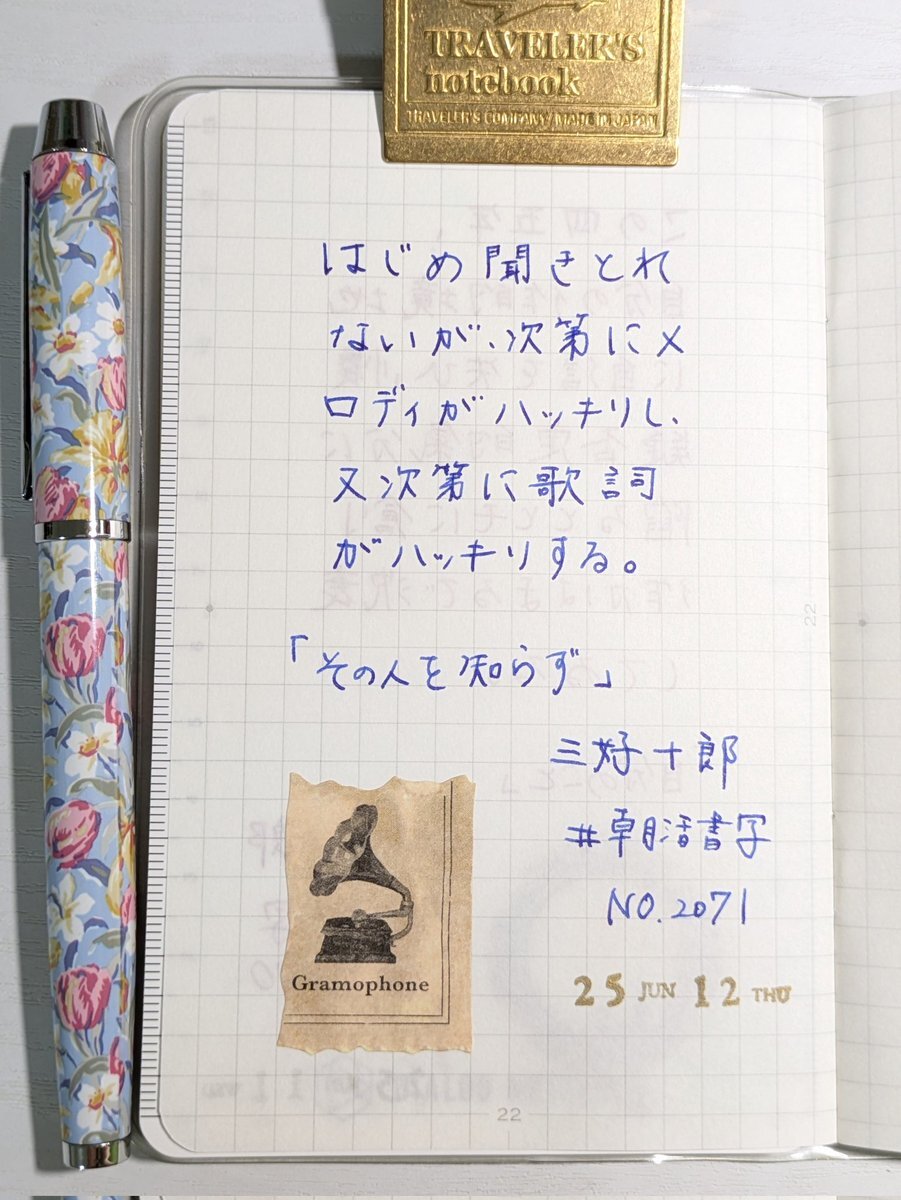 TRAVELER'S
notebook
TRAVELER'S COMPANY MADE IN JAPAN
はじめ聞きとれ
ないが、次第にメ
ロディがハッキリし、
又次第に歌詞
がハッキリする。
「その人を知らず」
三好十郎
#朝活書写
NO.2071
Gramophone
25 JUN 12 THU
22
22